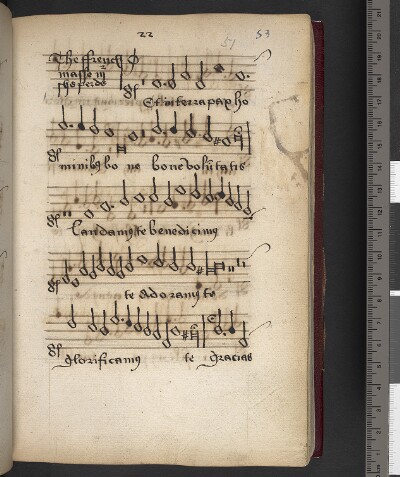 22
51 53
The ffrench
masse
Et in terra pax ho
minibus bo ne bone volūtatis
Laudamus te benedicimus
te adoramus te
glorificamus te gracias